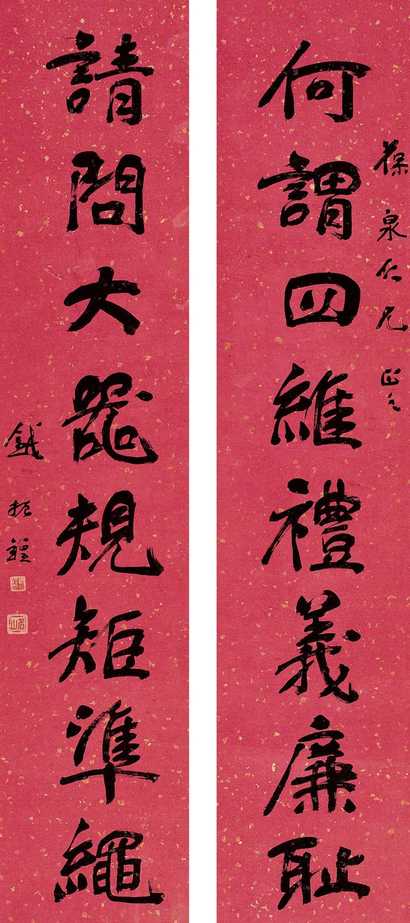 葆泉仁兄正之
何謂四維禮義廉恥
請問大器規矩準繩
錢振鍠